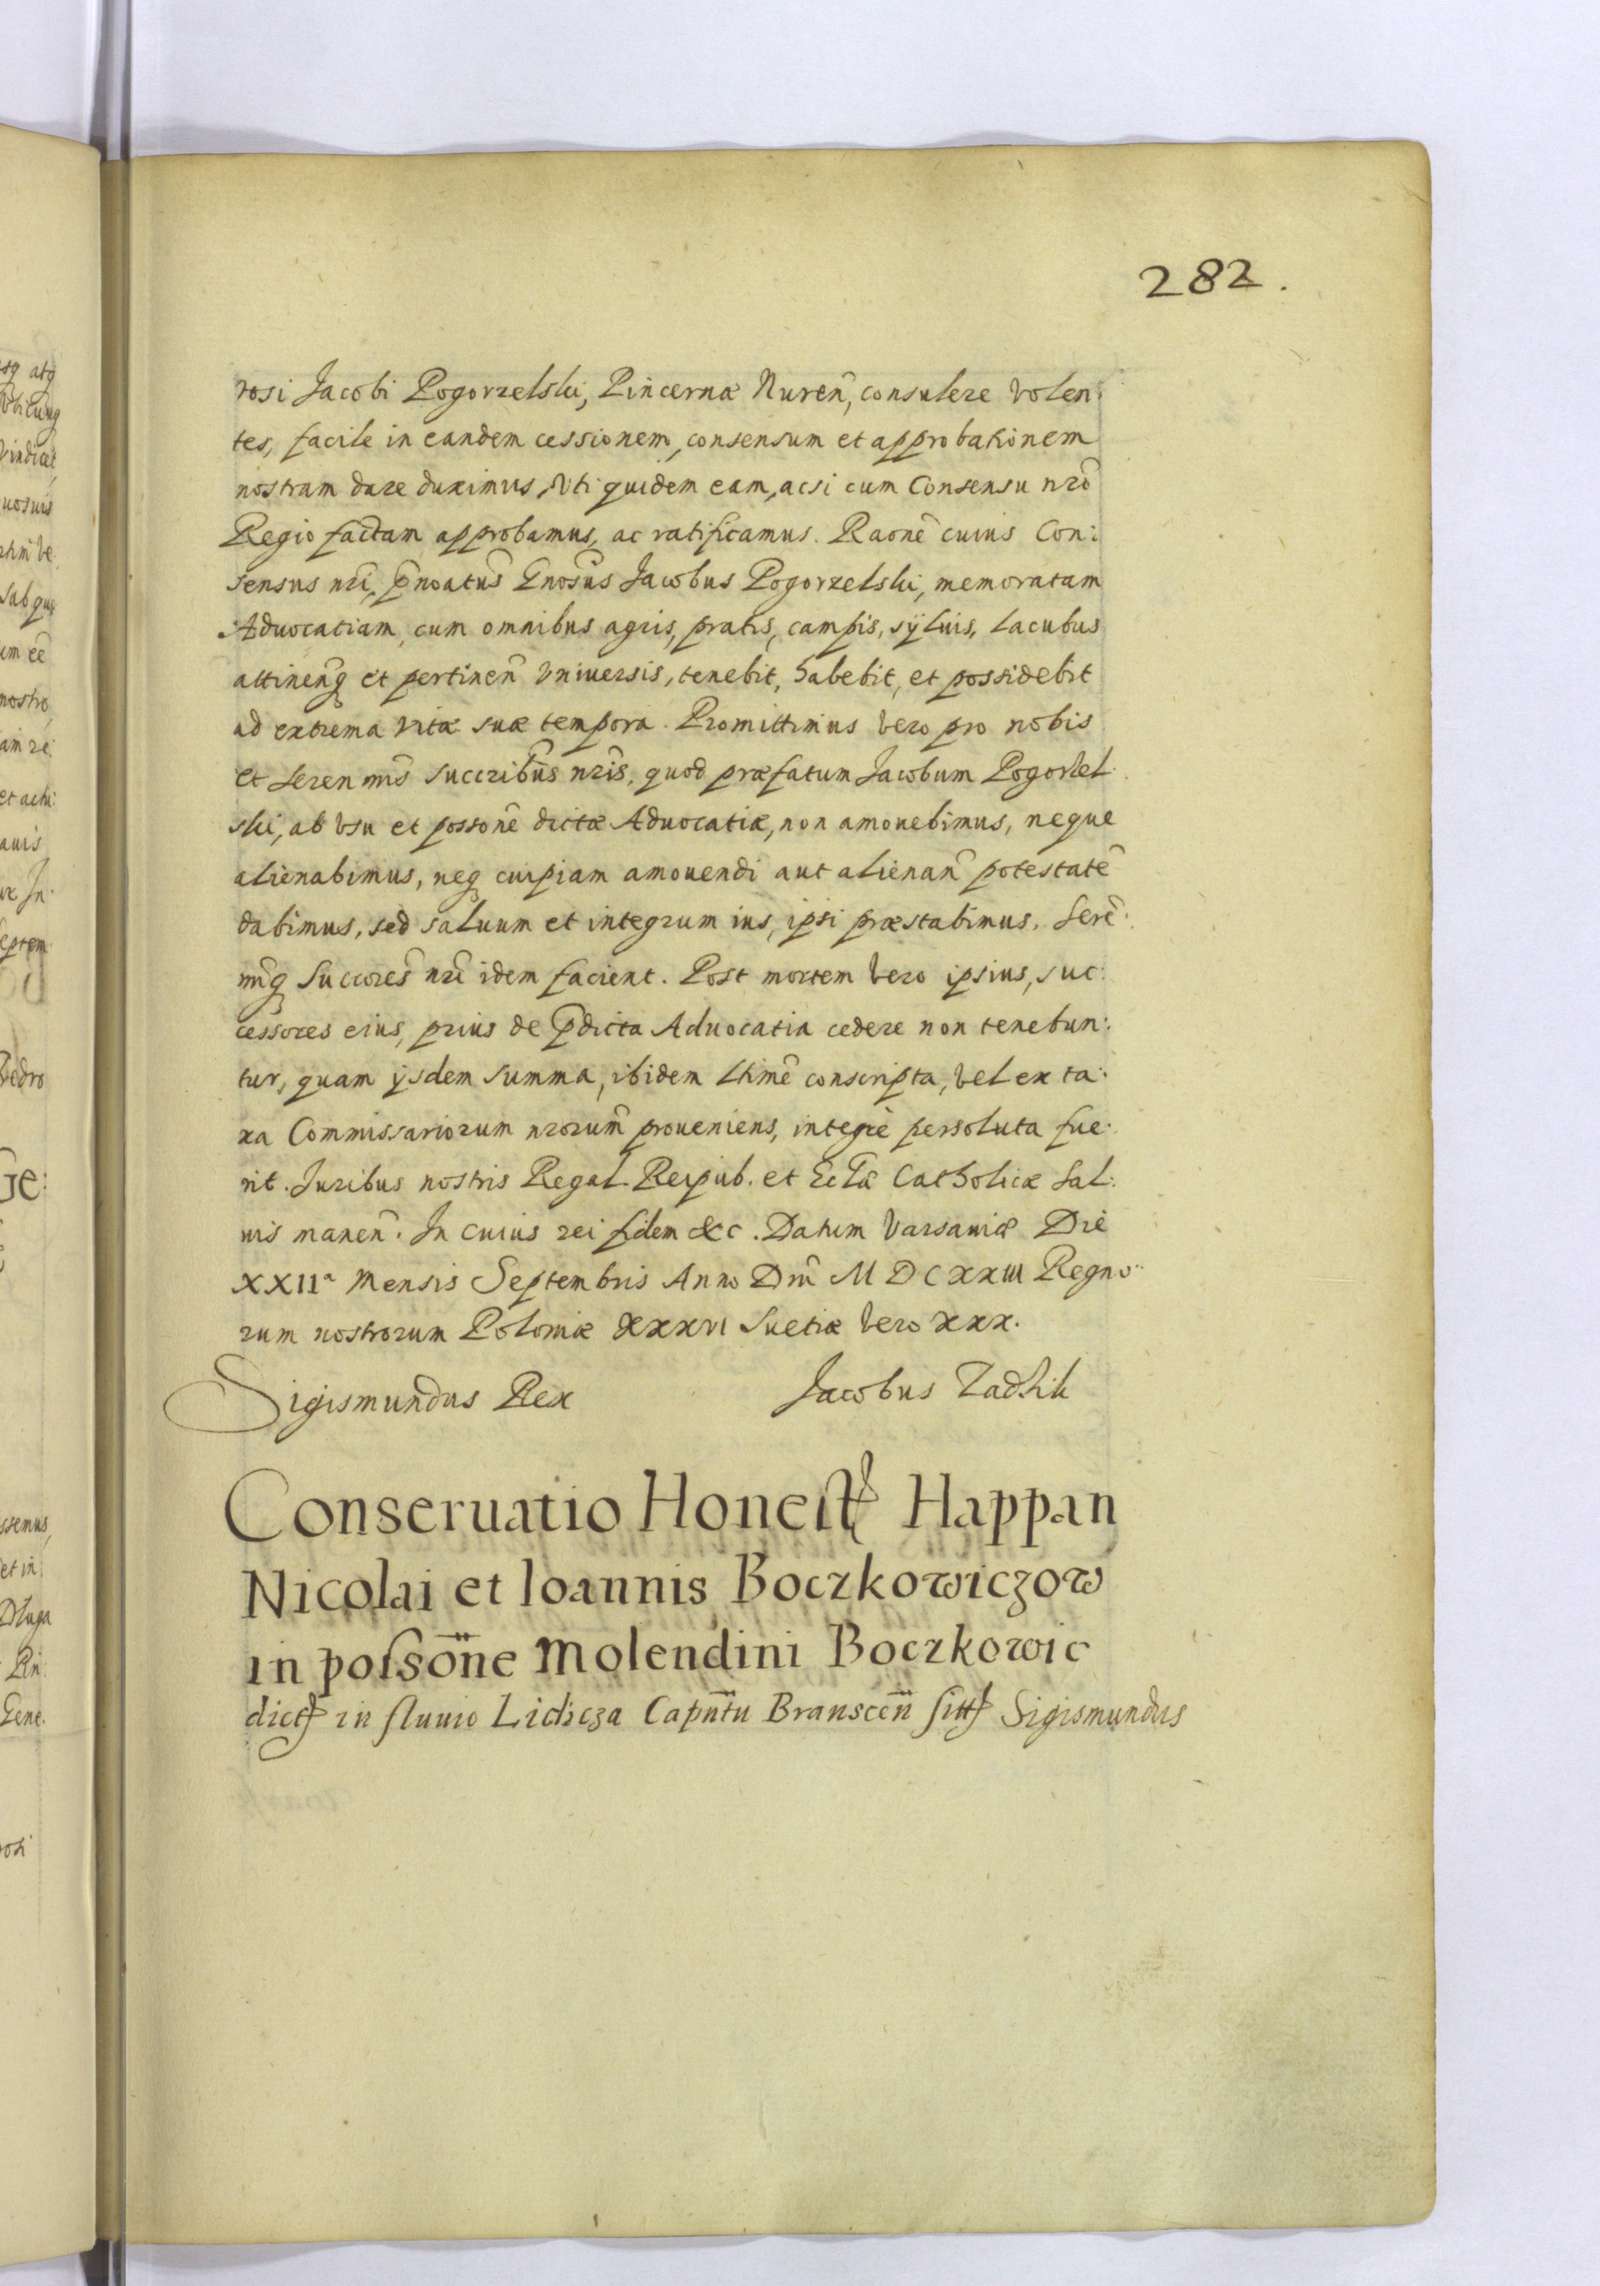 282.
rosi Jacobi Pogorzelski, Pincernæ Nureñ, consulere volen:
tes, facile in eandem cessionem, consensum et approbationem
nostram dare duximus, Vti quidem eam, acsi cum Consensu nrõ
Regio factam approbamus, ac ratificamus. Raonẽ cuius Con:
sensus nrĩ, p̃noatus̃ Gnosus̃ Jacobus Pogorzelski, memoratam
Aduocatiam, cum omnibus agris, pratis, campis, sÿluis, lacubus
attineñq et pertineñ Vniuersis, tenebit, habebit, et possidebit
ad extrema vitæ suæ tempora. Promittimus vero pro nobis
et Seren mis̃ succribus̃ nris̃, quod præfatum Jacobum Pogorzel
ski, ab vsu et possonẽ dictæ Aduocatiæ, non amouebimus, neque
alienabimus, neq cuipiam amouendi aut alienañ potestatẽ
dabimus, sed saluum et integrum ius, ipsi præstabimus. Serẽ:
mĩq Succores̃ nrĩ idem facient. Post mortem vero ipsius, suc:
cessores eius, prius de p̃dicta Aduocatia cedere non tenebun:
tur, quam ijsdem summa, ibidem ltimẽ conscripta, vel ex ta:
xa Commissariorum nrorum̃ proueniens, integrè persoluta fue:
rit. Juribus nostris Regal. Reipub. et Eclæ̃ Catholicæ Sal:
uis maneñ. In cuius rei fidem &c. Datum Varsauiæ Die
XXIIa Mensis Septembris Anno Dnĩ M D C XXIII Regno:
rum nostrorum Poloniæ XXXVI Suetiæ vero XXX.
Sigismundus Rex Jacobus Zadzik
Conseruatio Honest Happan
Nicolai et Ioannis Boczkowiczow
in possone̅ Molendini Boczkowic
dict in fluuio Lidicza Capnt̃u Branscen̅ sitt Sigismundus